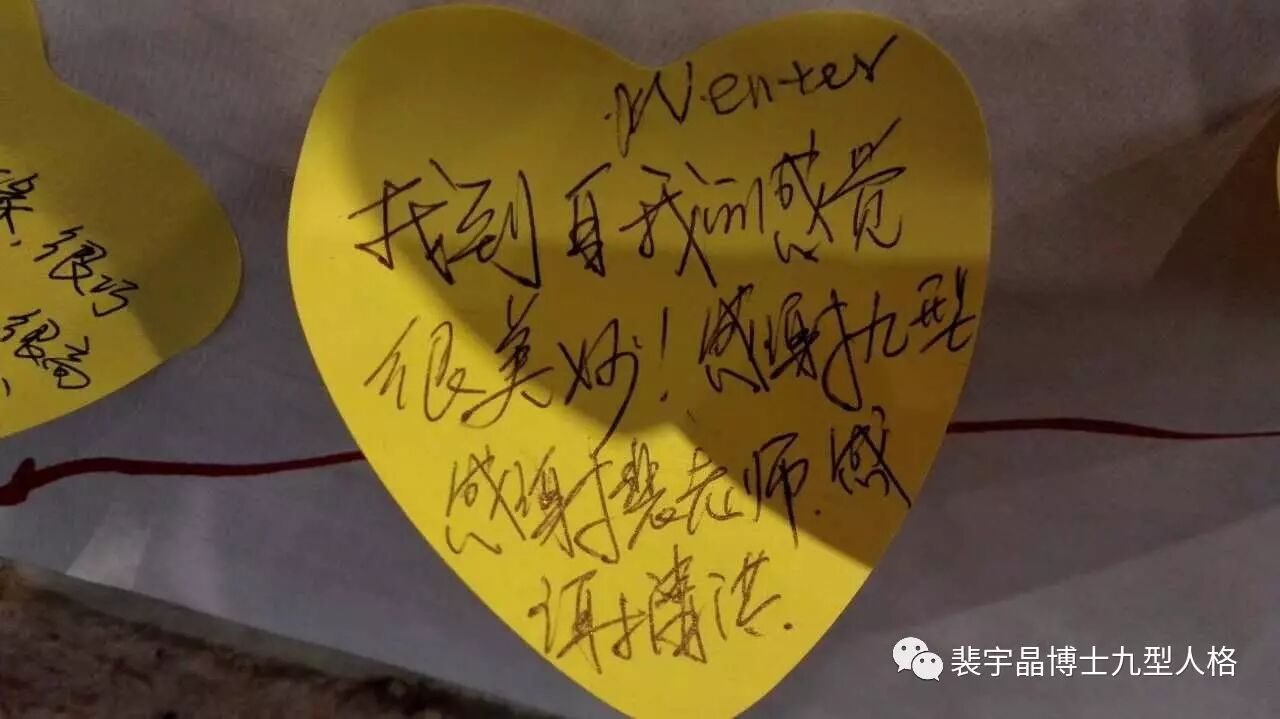 Wenter
找到自我的感觉
很美妙！感谢九型
感谢裴老师.感
谢潇洪.
很巧
很高
裴宇晶博士九型人格